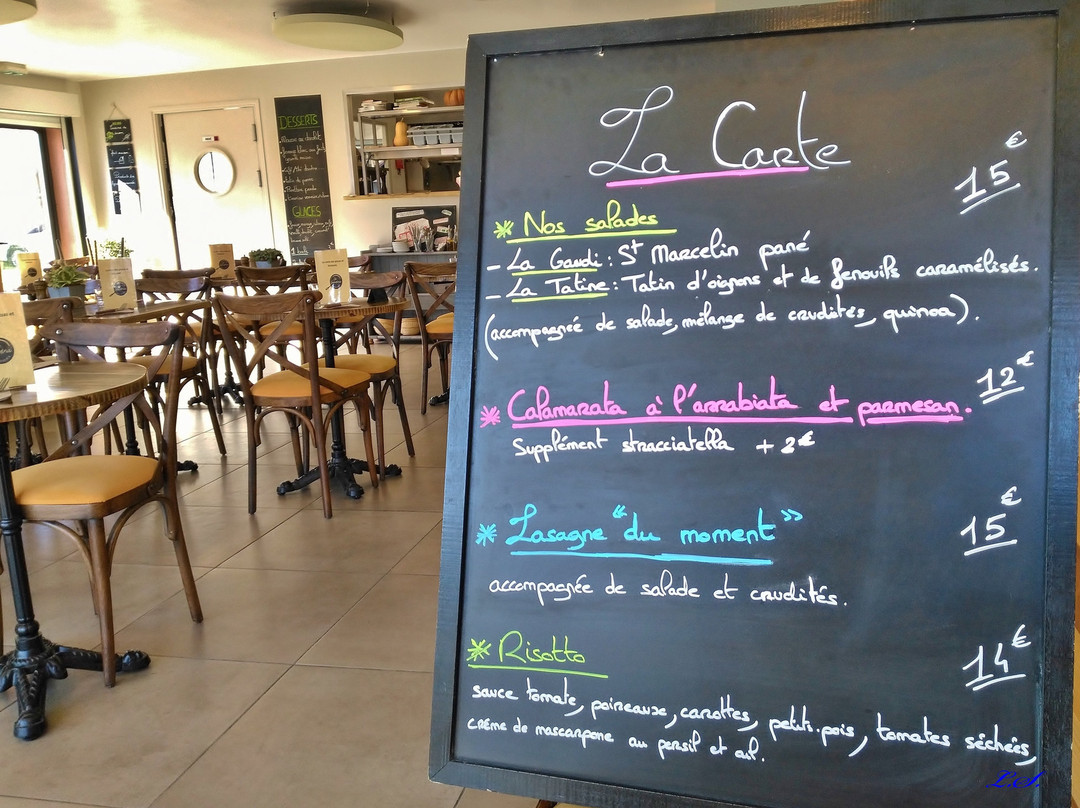 La Carte
15€
* Nos salades
- La Gaudi : St Marcelin pané
- La Tatine : Tatin d'oignons et de fenouils caramélisés.
(accompagnée de salade, mélange de crudités, quinoa).
12€
* Calamarata à l'arrabiata et parmesan.
Supplément stracciatella + 2€
15€
* Lasagne "du moment"
accompagnée de salade et crudités.
14€
* Risotto
sauce tomate, poireaux, carottes, petits-pois, tomates séchées,
crème de mascarpone au persil et ail.
L.S.
DESSERTS
GLACES